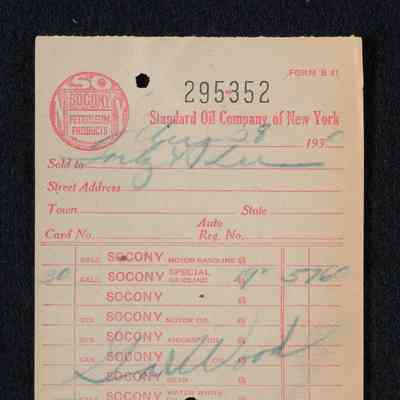 SO
SOCONY
PETROLEUM
PRODUCTS
FORM B 41
295352
Standard Oil Company of New York
193
Sold to
Street Address
Town State
Card No. Auto Reg. No.
GALS. SOCONY MOTOR GASOLINE @
30 GALS. SOCONY SPECIAL GASOLINE @ 576
SOCONY
QTS. SOCONY MOTOR OIL @
GALS. SOCONY
SOCONY
SOCONY GEAR
SOCONY WHITE
Wood